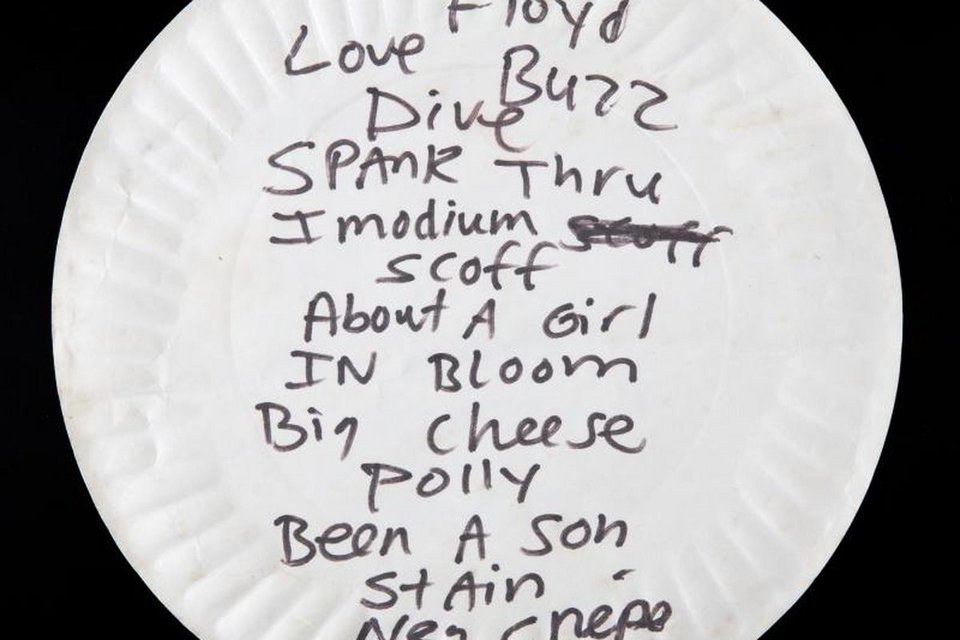 Floyd
Love Buzz
Dive
SPAnk Thru
Imodium
scoff
About A Girl
IN BLoom
Big cheese
polly
Been A Son
StAin
Neg creep